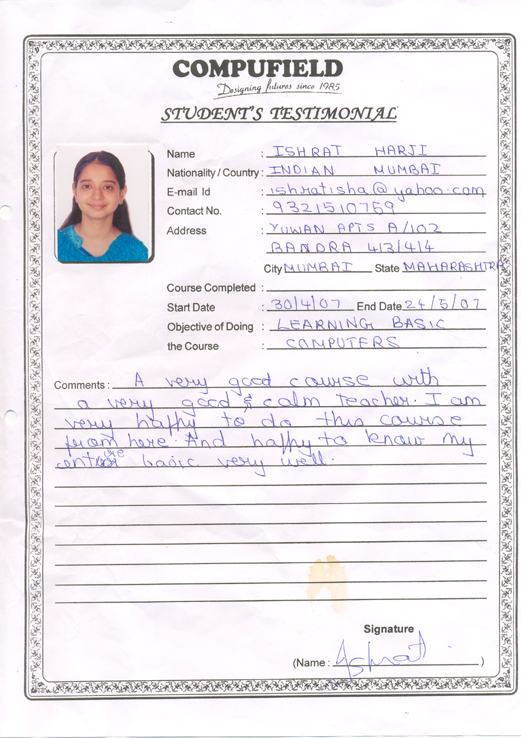 COMPUFIELD
Designing futures since 1985
STUDENT'S TESTIMONIAL
Name : ISHRAT HARJI
Nationality / Country : INDIAN MUMBAI
E-mail Id : ishratisha@yahoo.com
Contact No. : 9321510759
Address : YUWAN APTS A/102
BANDRA 413/414
City MUMBAI State MAHARASHTRA
Course Completed :
Start Date : 30/4/07 End Date 24/5/07
Objective of Doing : LEARNING BASIC
the Course COMPUTERS
Comments : A very good course with
a very good & calm teacher. I am
very happy to do this course
from here. And happy to know my
entire basic very well.
Signature
(Name : Ishrat )